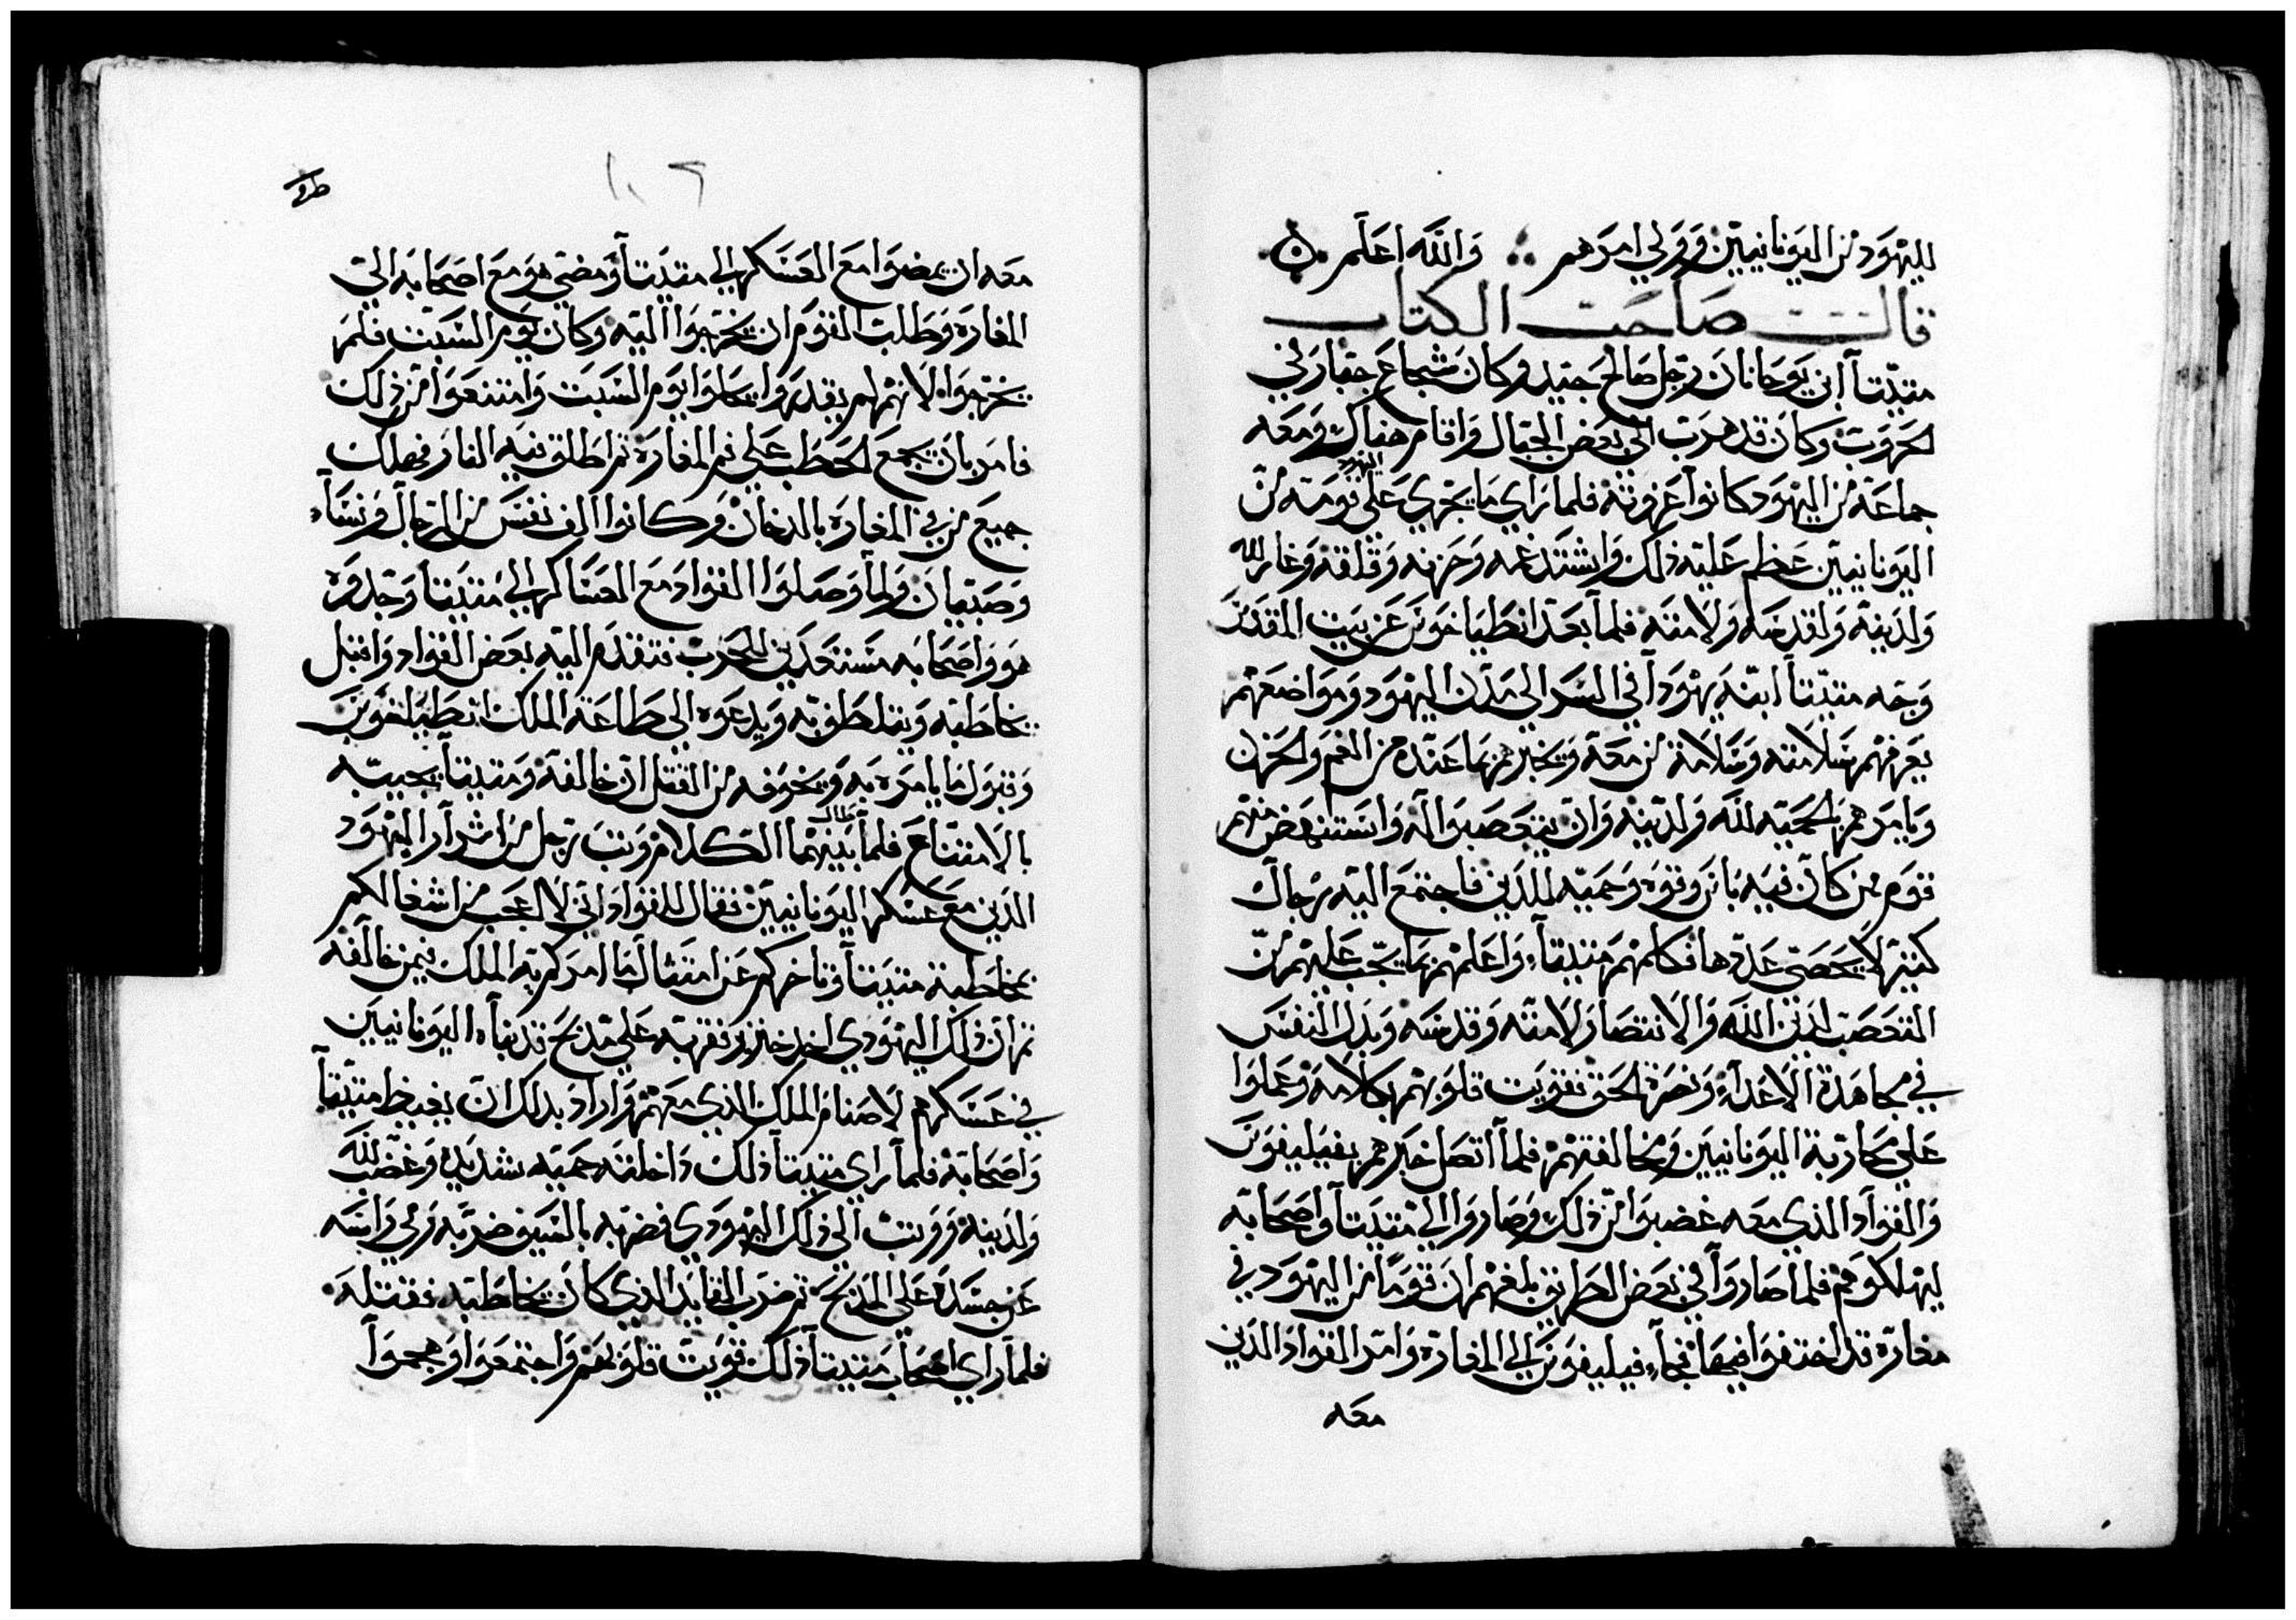 لليهود من اليونانيين وولي امرهم ܀ والله اعلم
قالت صاحب الكتاب
متيتا ابن يوحانان رجل صالح جيد وكان شجاع جبار في
الحروب وكان قد هرب الي بعض الجبال واقام هناك ومعه
جماعة من اليهود كانوا عزوته فلما راي ما يجري علي قومه اليهود من
اليونانيين عظم عليه ذلك واشتد غمه وحزنه وقلقه وغار لله
ولدينه ولقدسه ولامته فلما بعد انطياخوس عن بيت المقدس
وجه متيتا ابنه يهودا في السر الي مدن اليهود ومواضعهم
يعرفهم سلامته وسلامة من معه ويخبرهم بما عنده من الغم والحزن
ويامرهم بالحميه لله ولدينه وان يتعصبوا له واستنهض منهم
قوم من كان فيه باس وقوه وحميه للدين فاجتمع اليه رجال
كثير لا يحصي عددها فكلمهم متيتا واعلمهم بما يجب عليهم من
التعصب لدين الله والانتصار لامته وقدسه وبدل النفس
في مجاهدة الاعداء ونصرة الحق فقويت قلوبهم بكلامه وعملوا
علي محاربة اليونانيين ومخالفتهم فلما اتصل خبرهم بفيليفوس
والقواد الذي معه غضبوا من ذلك وصاروا الي متيتا واصحابه
ليهلكوهم فلما صاروا في بعض الطريق بلغهم ان قوما من اليهود في
مغارة قد اختفوا فيها فجاء فيليفوس الي المغارة وامر القواد الذين
معه
١٠٦
معه ان يمضوا مع العسكر الي متيتا ومضي هو مع اصحابه الي
المغاره وطلب القوم ان يخرجوا اليه وكان يوم السبت فلم
يخرجوا لانهم لم يقدروا يحلوا يوم السبت وامتنعوا من ذلك
فامر بان يجمع الحطب علي فم المغارة ثم اطلق فيه النار فهلك
جميع من في المغارة بالدخان وكانوا الف نفس من الرجال ونساء
وصبيان ولما وصلوا القواد مع العساكر الي متيتا وجدوه
هو واصحابه مستعدين للحرب فتقدم اليه بعض القواد واقبل
يخاطبه ويتلطف به ويدعوه الي طاعة الملك انطياخوس
وقبول ما يامره به ويخوفه من القتل ان خالفه ومتيتا يجيبه
بالامتناع فلما طال بينهما الكلام وثب رجل من اشرار اليهود
الذين مع عسكر اليونانيين فقال للقواد اني لا اعجب من اشغالكم
بمخاطبة متيتا وتاخركم عن امتثال ما امركم به الملك فيمن خالفه
ثم ان ذلك اليهودي اخد خنزير فقربه علي مدبح قد بناه اليونانيين
في عسكرهم لاصنام الملك الذي معهم واراد بدلك ان يغيظ متيتا
واصحابه فلما راي متيتا ذلك داخلته حميه شديده وغضب لله
ولدينه ووثب الي ذلك اليهودي فضربه بالسيف ضربه رمي راسه
عن جسده علي المدبح ثم ضرب القايد الذي كان يخاطبه فقتله
فلما راي اصحاب متيتا ذلك قويت قلوبهم واجتمعوا وهجموا